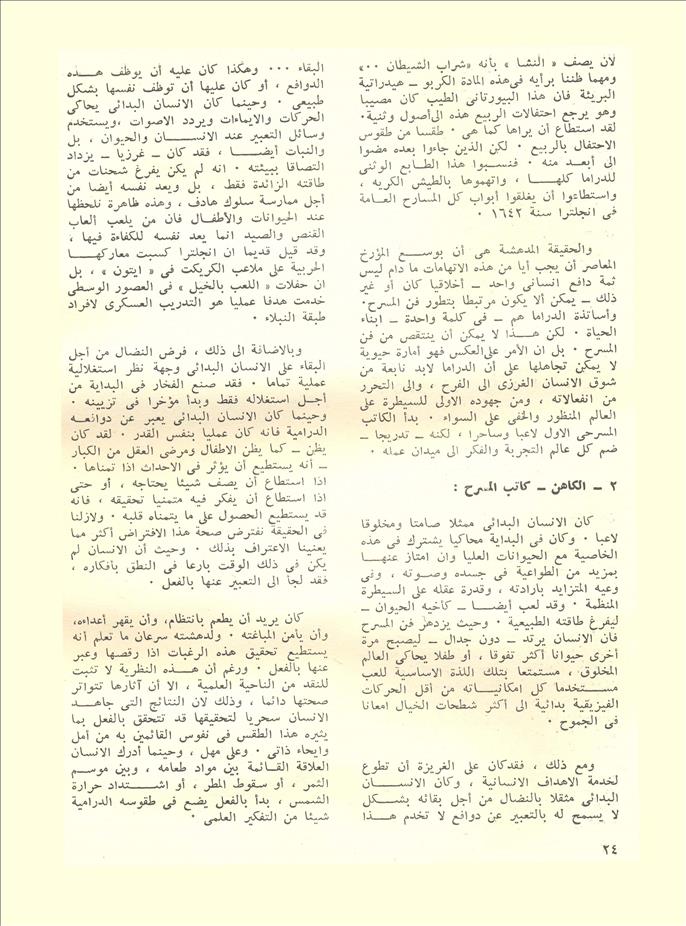 لان يصف « النشا » بأنه «شراب الشيطان ٠٠»
ومهما ظننا برأيه فى هذه المادة الكربو ــ هيدراتية
البريئة فان هذا البيورتانى الطيب كان مصيبا
وهو يرجع احتفالات الربيع هذه الى أصول وثنية ٠
لقد استطاع أن يراها كما هى ٠ طقسا من طقوس
الاحتفال بالربيع ٠ لكن الذين جاءوا بعده مضوا
الى أبعــد منه ٠ فنســبوا هذا الطــابع الوثنى
للدراما كلهـــا ، واتهموها بالطيش الكريه ،
واستطاعوا أن يغلقوا أبواب كل المسارح العــامة
فى انجلترا سنة ١٦٤٢ ٠
والحقيقة المدهشة هى أن بوســـع المؤرخ
المعاصر أن يجب أيا من هذه الاتهامات ما دام ليس
ثمة دافع انسانى واحد ــ أخلاقيا كان أو غير
ذلك ــ يمكن ألا يكون مرتبطا بتطور فن المسرح٠
وأساتذة الدراما هم ــ فى كلمة واحدة ــ ابناء
الحياة ٠ لكن هـــذا لا يمكن أن ينتقص من فن
المسرح ٠ بل ان الأمر على العكس فهو أمارة حيوية
لا يمكن تجاهلها على أن الدراما لابد نابعة من
شوق الانسان الغرزى الى الفرح ، والى التحرر
من انفعالاته ، ومن جهوده الاولى للسيطرة على
العالم المنظور والخفى على السواء ٠ بدأ الكاتب
المسرحى الاول لاعبا وساحرا ، لكنه ــ تدريجا ــ
ضم كل عالم التجربة والفكر الى ميدان عمله ٠
٢ ــ الكاهن ــ كاتب المسرح :
كان الانسان البدائى ممثلا صامتا ومخلوقا
لاعبا ٠ وكان فى البداية محاكيا يشترك فى هذه
الخاصية مع الحيوانات العليا وان امتاز عنهــا
بمزيد من الطواعية فى جسده وصــوته ، وفى
وعيه المتزايد بارادته ، وقدرة عقله على السيطرة
المنظمة ٠ وقد لعب أيضـــا ــ كأخيه الحيوان ــ
ليفرغ طاقته الطبيعية ٠ وحيث يزدهر فن المسرح
فان الانسان يرتد ــ دون جدال ــ ليصبح مرة
أخرى حيوانا أكثر تفوقا ، أو طفلا يحاكى العالم
المخلوق ، مستمتعا بتلك اللذة الاساسية للعب
مســـتخدما كل امكانيـــاته من أقل الحركات
الفيزيقية بدائية الى أكثر شطحات الخيال امعانا
فى الجموح ٠
ومع ذلك ، فقد كان على الغريزة أن تطوع
لخدمة الاهداف الانسانية ، وكان الانســــان
البدائى مثقلا بالنضال من أجل بقائه بشــــكل
لا يسمح له بالتعبير عن دوافع لا تخدم هــــذا
البقاء ٠٠٠ وهكذا كان عليه أن يوظف هـــذه
الدوافع ، أو كان عليها أن توظف نفسها بشكل
طبيعى ٠ وحينما كان الانسان البدائى يحاكى
الحركات والايماءات ويردد الاصوات ،ويستخدم
وسائل التعبير عند الانســـان والحيوان ، بل
والنبات أيضـــا ، فقد كان ــ غرزيا ــ يزداد
التصاقا ببيئته ٠ انه لم يكن يفرغ شحنات من
طاقته الزائدة فقط ، بل ويعد نفسه أيضا من
أجل ممارسة سلوك هادف ، وهذه ظاهرة نلحظها
عند الحيوانات والأطفــال فان من يلعب ألعاب
القنص والصيد انما يعد نفسه للكفاءة فيها ،
وقد قيل قديما ان انجلترا كسبت معاركهــا
الحربية على ملاعب الكريكت فى « ايتون » ، بل
ان حفلات « اللعب بالخيل » فى العصور الوسطى
خدمت هدفا عمليا هو التدريب العسكرى لافراد
طبقة النبلاء ٠
وبالاضافة الى ذلك ، فرض النضال من أجل
البقاء على الانسان البدائى وجهة نظر استغلالية
عملية تماما ٠ فقد صنع الفخار فى البداية من
أجـل استغلاله فقط وبدأ مؤخرا فى تزيينه ٠
وحينما كان الانسان البدائى يعبر عن دوافعه
الدرامية فانه كان عمليا بنفس القدر ٠ لقد كان
يظن ــ كما يظن الاطفال ومرضى العقل من الكبار
ــ أنه يستطيع أن يؤثر فى الاحداث اذا تمناها ٠
اذا استطاع أن يصف شيئا يحتاجه ، أو حتى
اذا استطاع أن يفكر فيه متمنيا تحقيقه ، فانه
قد يستطيع الحصول على ما يتمناه قلبه ٠ ولازلنا
فى الحقيقة نفترض صحة هذا الافتراض أكثر مما
يعنينا الاعتراف بذلك ٠ وحيث أن الانسان لم
يكن فى ذلك الوقت بارعا فى النطق بأفكاره ،
فقد لجأ الى التعبير عنها بالفعل ٠
كان يريد أن يطعم بانتظام، وأن يقهر أعداءه،
وأن يأمن المباغتة ٠ ولدهشته سرعان ما تعلم أنه
يستطيع تحقيق هذه الرغبات اذا رقصها وعبر
عنها بالفعل ٠ ورغم أن هـــذه النظرية لا تثبت
للنقد من الناحية العلمية ، الا أن آثارها تتواتر
صحتها دائما ، وذلك لان النتائج التى جاهــد
الانسان سحريا لتحقيقها قد تتحقق بالفعل بما
يثيره هذا الطقس فى نفوس القائمين به من أمل
وايحاء ذاتى ٠ وعلى مهل ، وحينما أدرك الانسان
العلاقة القــائمة بين مواد طعامه ، وبين موســم
الثمر ، أو سقوط المطر ، أو اشـــتداد حرارة
الشمس ، بدأ بالفعل يضع فى طقوسه الدرامية
شيئا من التفكير العلمى ٠
٢٤